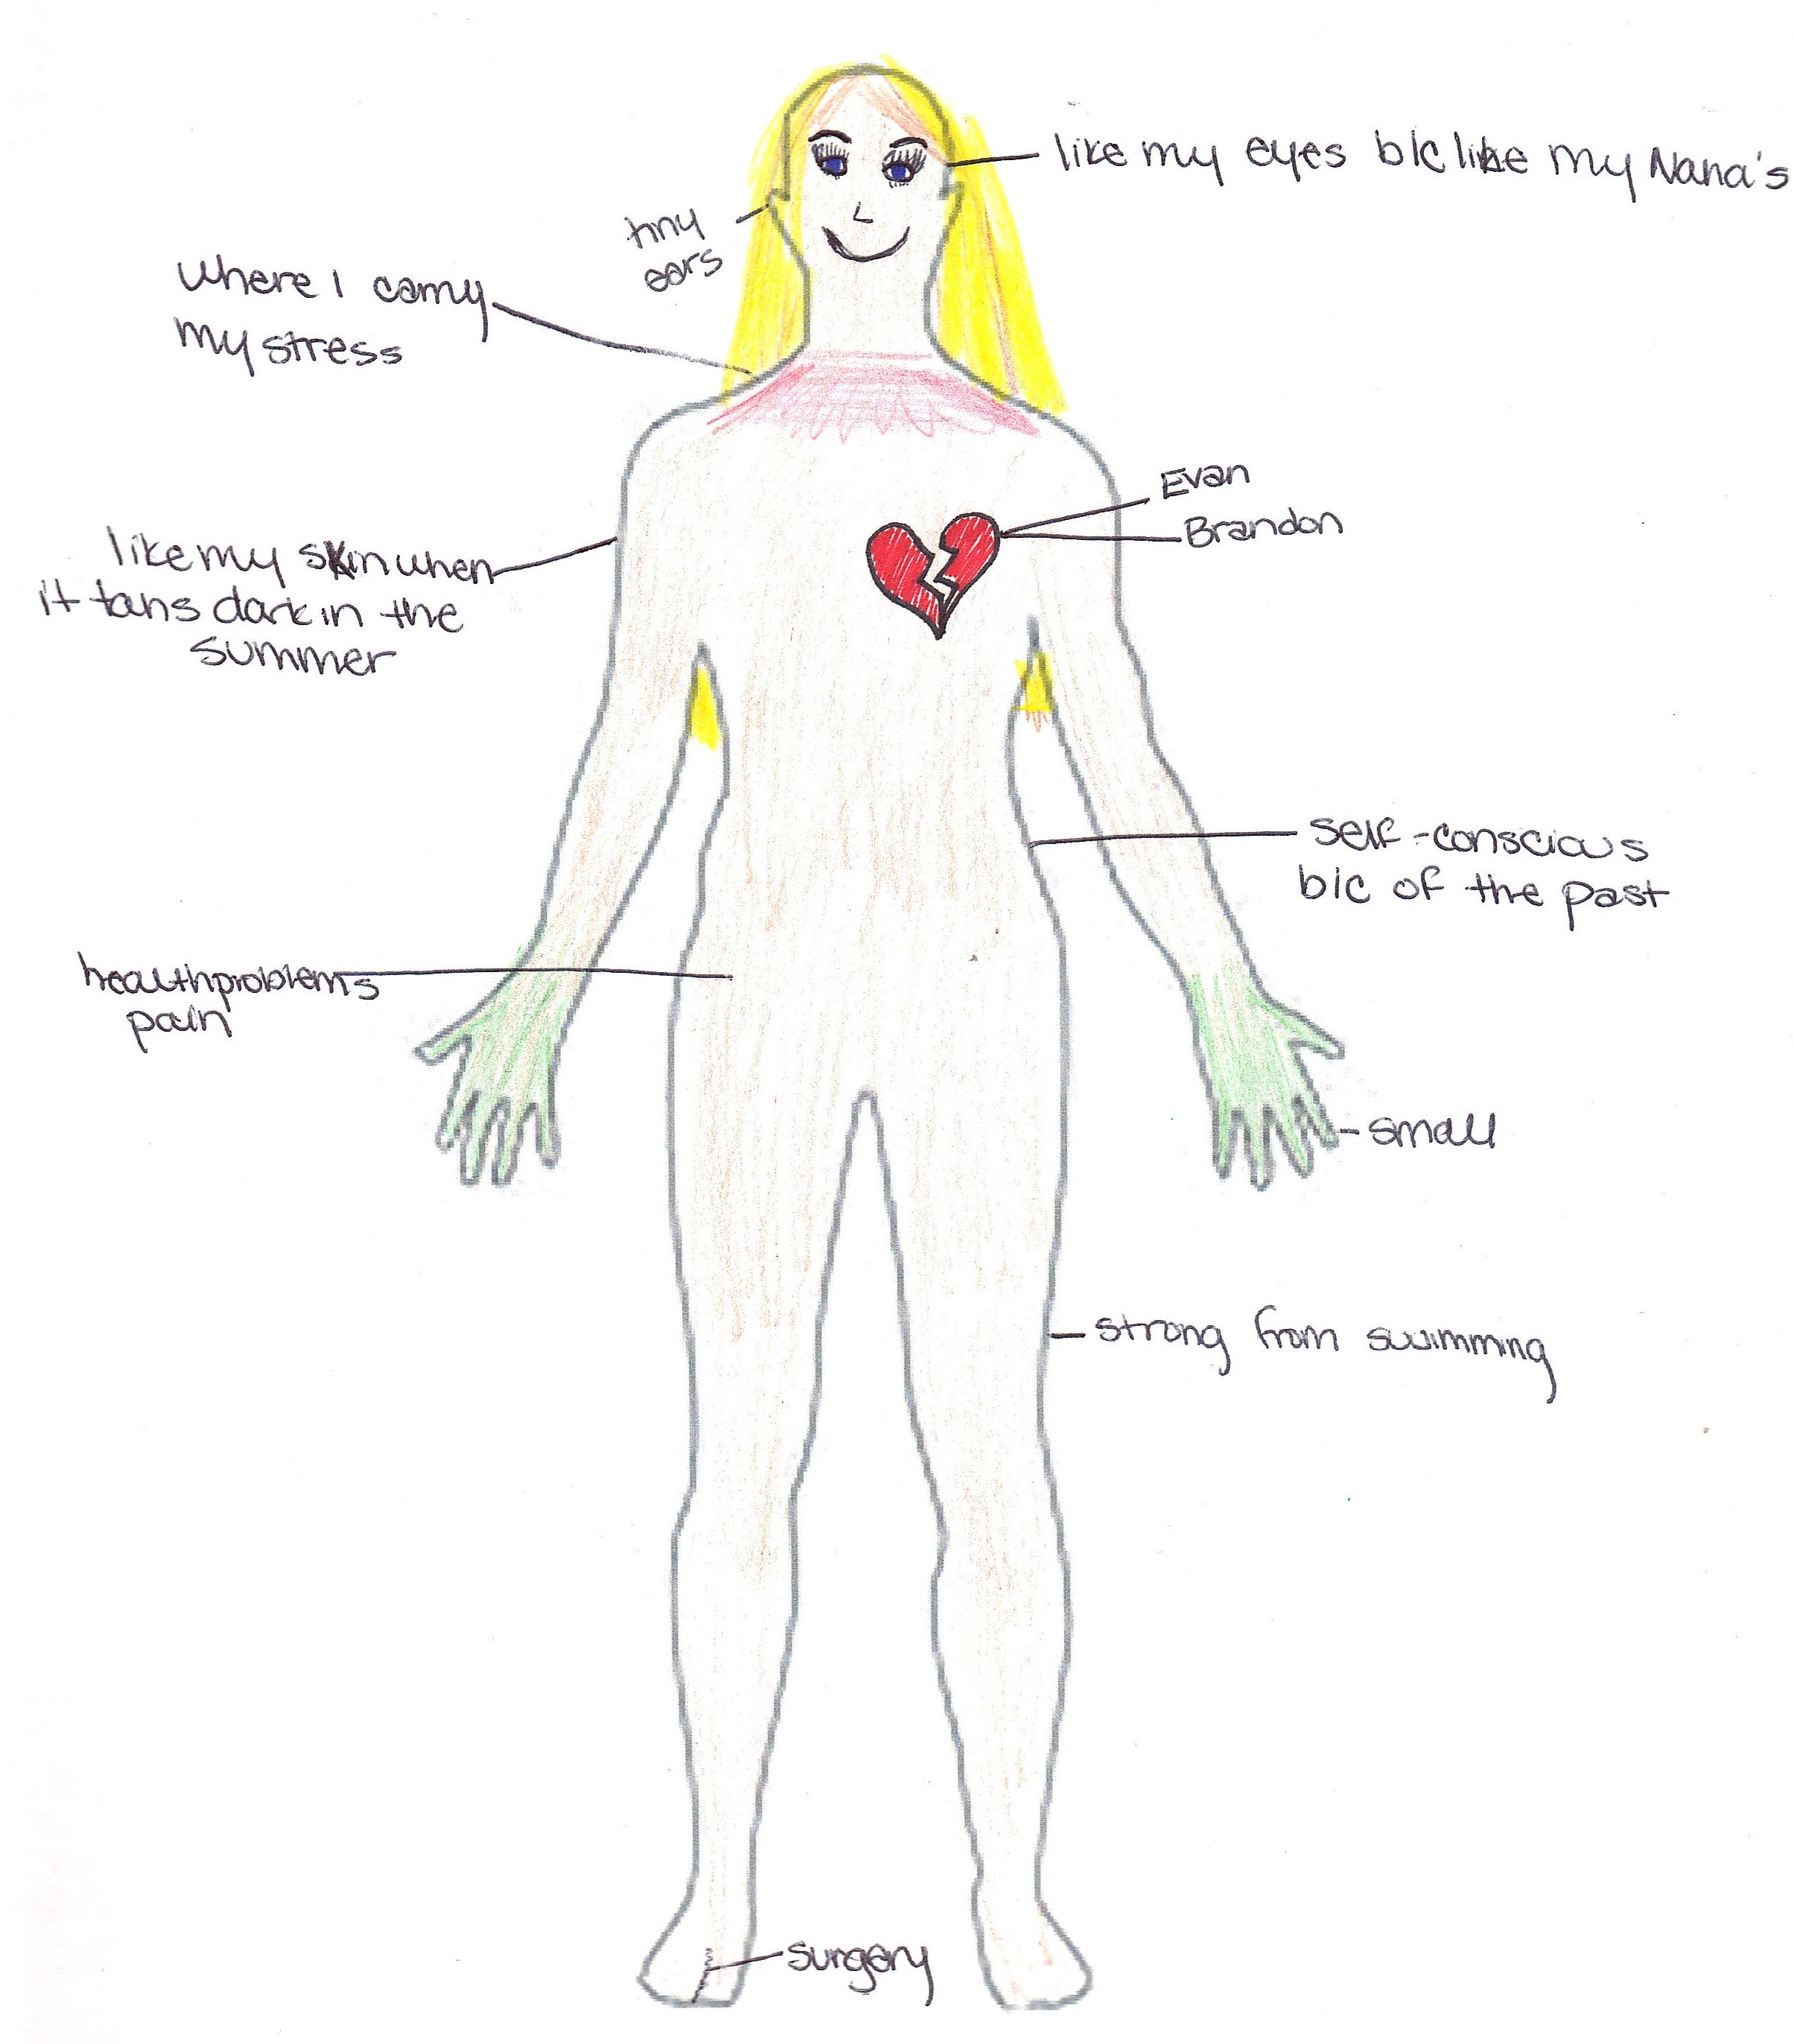 like my eyes b/c like my Nana's
tiny
ears
where I carry
my stress
Evan
Brandon
like my skin when
it tans dark in the
summer
self-conscious
b/c of the past
health problems
pain
small
strong from swimming
surgery